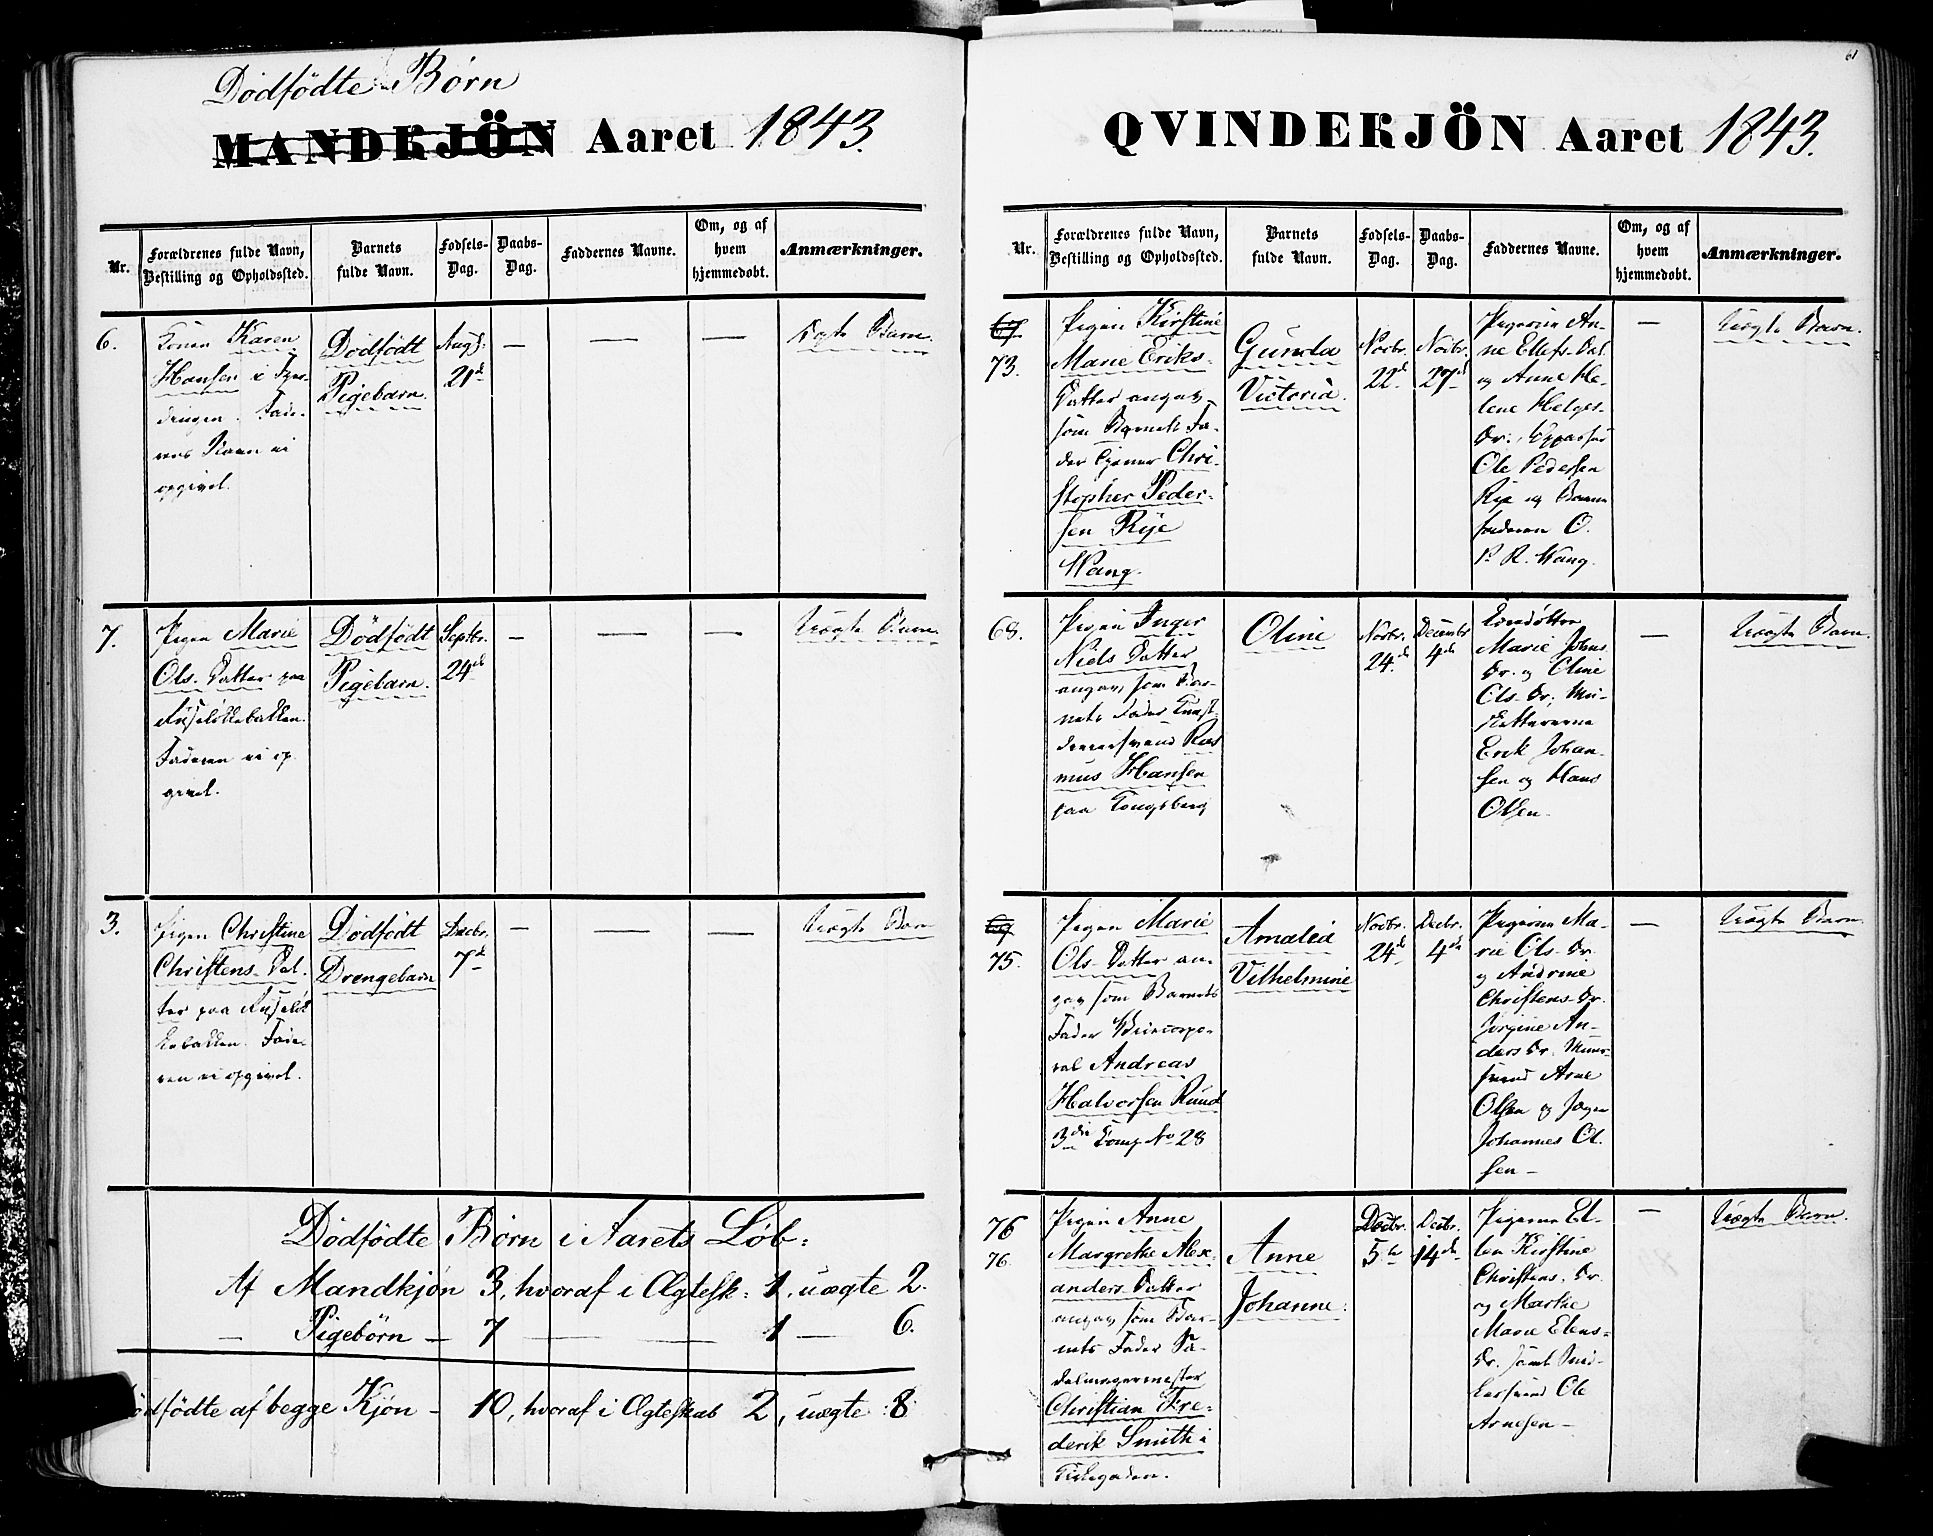 Dödfödte Börn
MANDKJÖN Aaret 1843.
Nr.
Forældrenes fulde Navn,
Bestilling og Opholdssted.
Barnets
fulde Navn.
Fødsels-
Dag.
Daabs-
Dag.
Faddernes Navne.
Om, og af
hvem
hjemmedøbt.
Anmærkninger.
6.
Konen Karen
Hansen i
Fade-
rens Navn ei
opgivet.
Dödfödt
Pigebarn.
Aug.
21d
—
—
—
Ægte Barn
7.
Pigen Marie
Ols. Datter paa
Ruselökbakken.
Faderen ei op-
givet.
Dödfödt
Pigebarn.
Septbr.
24d
—
—
—
Uægte Barn
3.
Pigen Christine
Christens-Dat-
ter paa Ruselök-
kebakken. Fade-
ren ei opgivet.
Dödfödt
Drengebarn
Decbr.
7d
—
—
—
Uægte Barn
Dödfödte Börn i Aarets Löb:
Af Mandkjön 3, hvoraf i Ægtesk: 1, uægte 2.
— Pigebörn — 7 — 1 — 6.
Dödfödte af begge Kjön — 10, hvoraf i Ægteskab 2, uægte 8
61
QVINDEKJÖN Aaret 1843.
Nr.
Forældrenes fulde Navn,
Bestilling og Opholdssted.
Barnets
fulde Navn.
Fødsels-
Dag.
Daabs-
Dag.
Faddernes Navne.
Om, og af
hvem
hjemmedøbt.
Anmærkninger.
67
73.
Pigen Kirstine
Marie Eriks-
Datter angav
som Barnets Fa-
der Tjener Chri-
stopher Peder-
sen Rye
Wang.
Gunda
Victoria.
Novbr.
22d
Novbr.
27d
Pigerne An-
ne Ellefs-Dat.
og Anne He-
lene Helges-
Dr.,
Ole Pedersen
Rye og Barne
faderen C.
P. R. Wang.
—
Uægte Barn.
68.
Pigen Inger
Niels Datter
angav som Bar-
nets Fader Kunst-
dreiersvend Ras
mus Hansen
paa Kongsberg
Oline
Novbr.
24d
Decembr
4de
Marie Johns
Dr. og Oline
Ols-Dr; Mu-
sketererne
Erik Johan-
sen og Hans
Olsen.
—
Uægte Barn.
69
75.
Pigen Marie
Ols-Datter an-
gav som Barnets
Fader
ral Andreas
Halvorsen Ruud
3die Comp No 28
Amalia
Vilhelmine
Novbr.
24d
Decbr.
4de
Pigerne Ma-
rie Ols-Dr.
og Andrine
Christens-Dr.
Jørgine An-
ders Dr. Murer-
svend Arne
Olsen og
Johannes Ol-
sen —
—
Uægte Barn
76
76.
Pigen Anne
Margrethe Alex-
anders-Datter
angav som Bar-
nets Fader Sa-
delmagermester
Christian Fre-
derik Smith i
Anne
Johanne.
Decbr.
5te
Decbr.
14de
Pigerne El-
len Kirstine
Christens-Dr.
og Marthe
Marie Elens-
Dr. samt Sned-
kersvend Ole
Arnesen —
—
Uægte Barn.